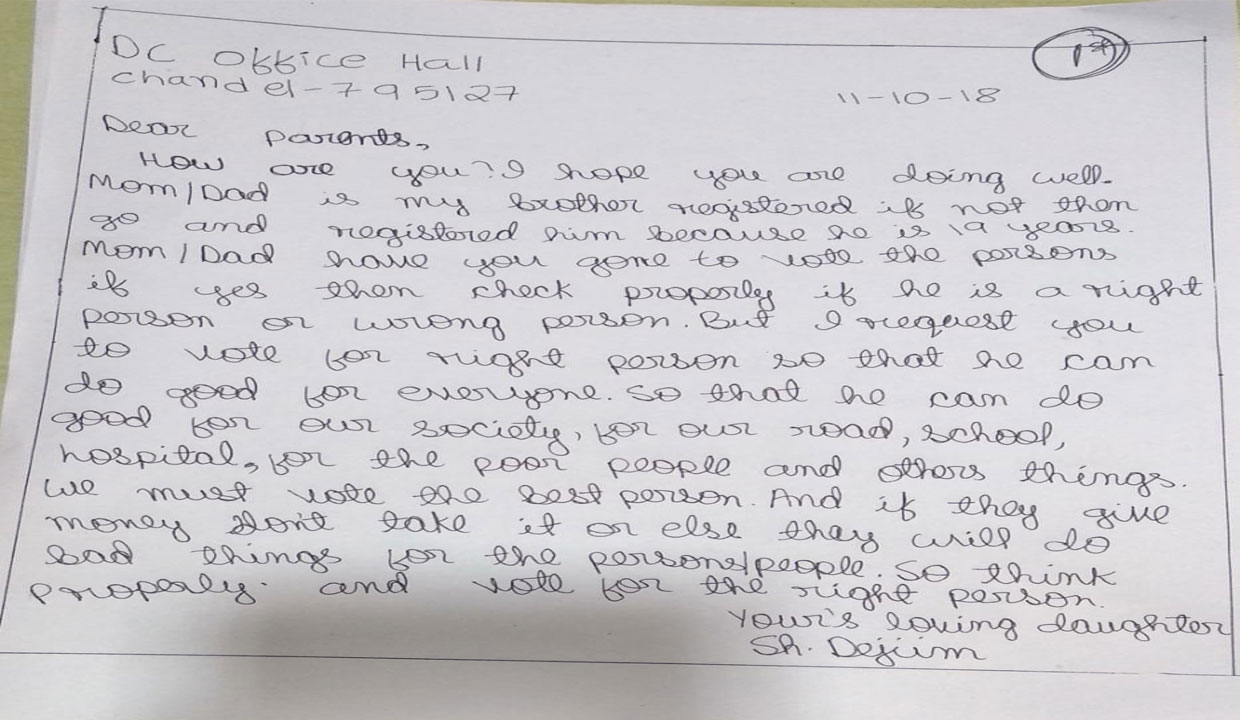 1st
DC Office Hall
Chandel-795127
11-10-18
Dear parents,
How are you? I hope you are doing well.
Mom/Dad is my brother registered if not then
go and registered him because he is 19 years.
Mom/Dad have you gone to vote the persons
if yes then check properly if he is a right
person or wrong person. But I request you
to vote for right person so that he can
do good for everyone. So that he can do
good for our society, for our road, school,
hospital, for the poor people and others things.
We must vote the best person. And if they give
money don't take it or else they will do
bad things for the persons/people. So think
properly. and vote for the right person.
Your's loving daughter
Sh. Dejiim